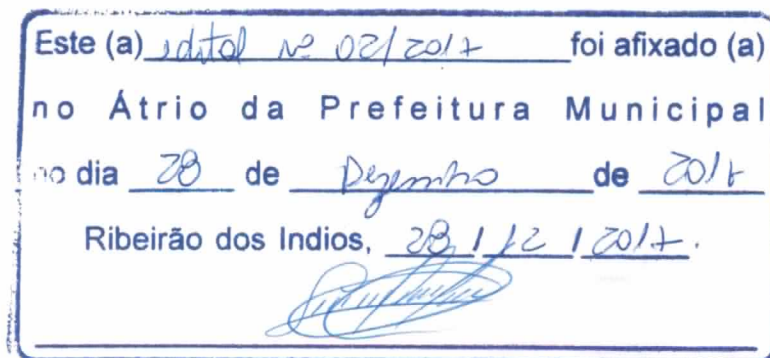 Este (a) edital nº 02/2017 foi afixado (a)
no Átrio da Prefeitura Municipal
no dia 28 de Dezembro de 2017
Ribeirão dos Indios, 28 / 12 / 2017.